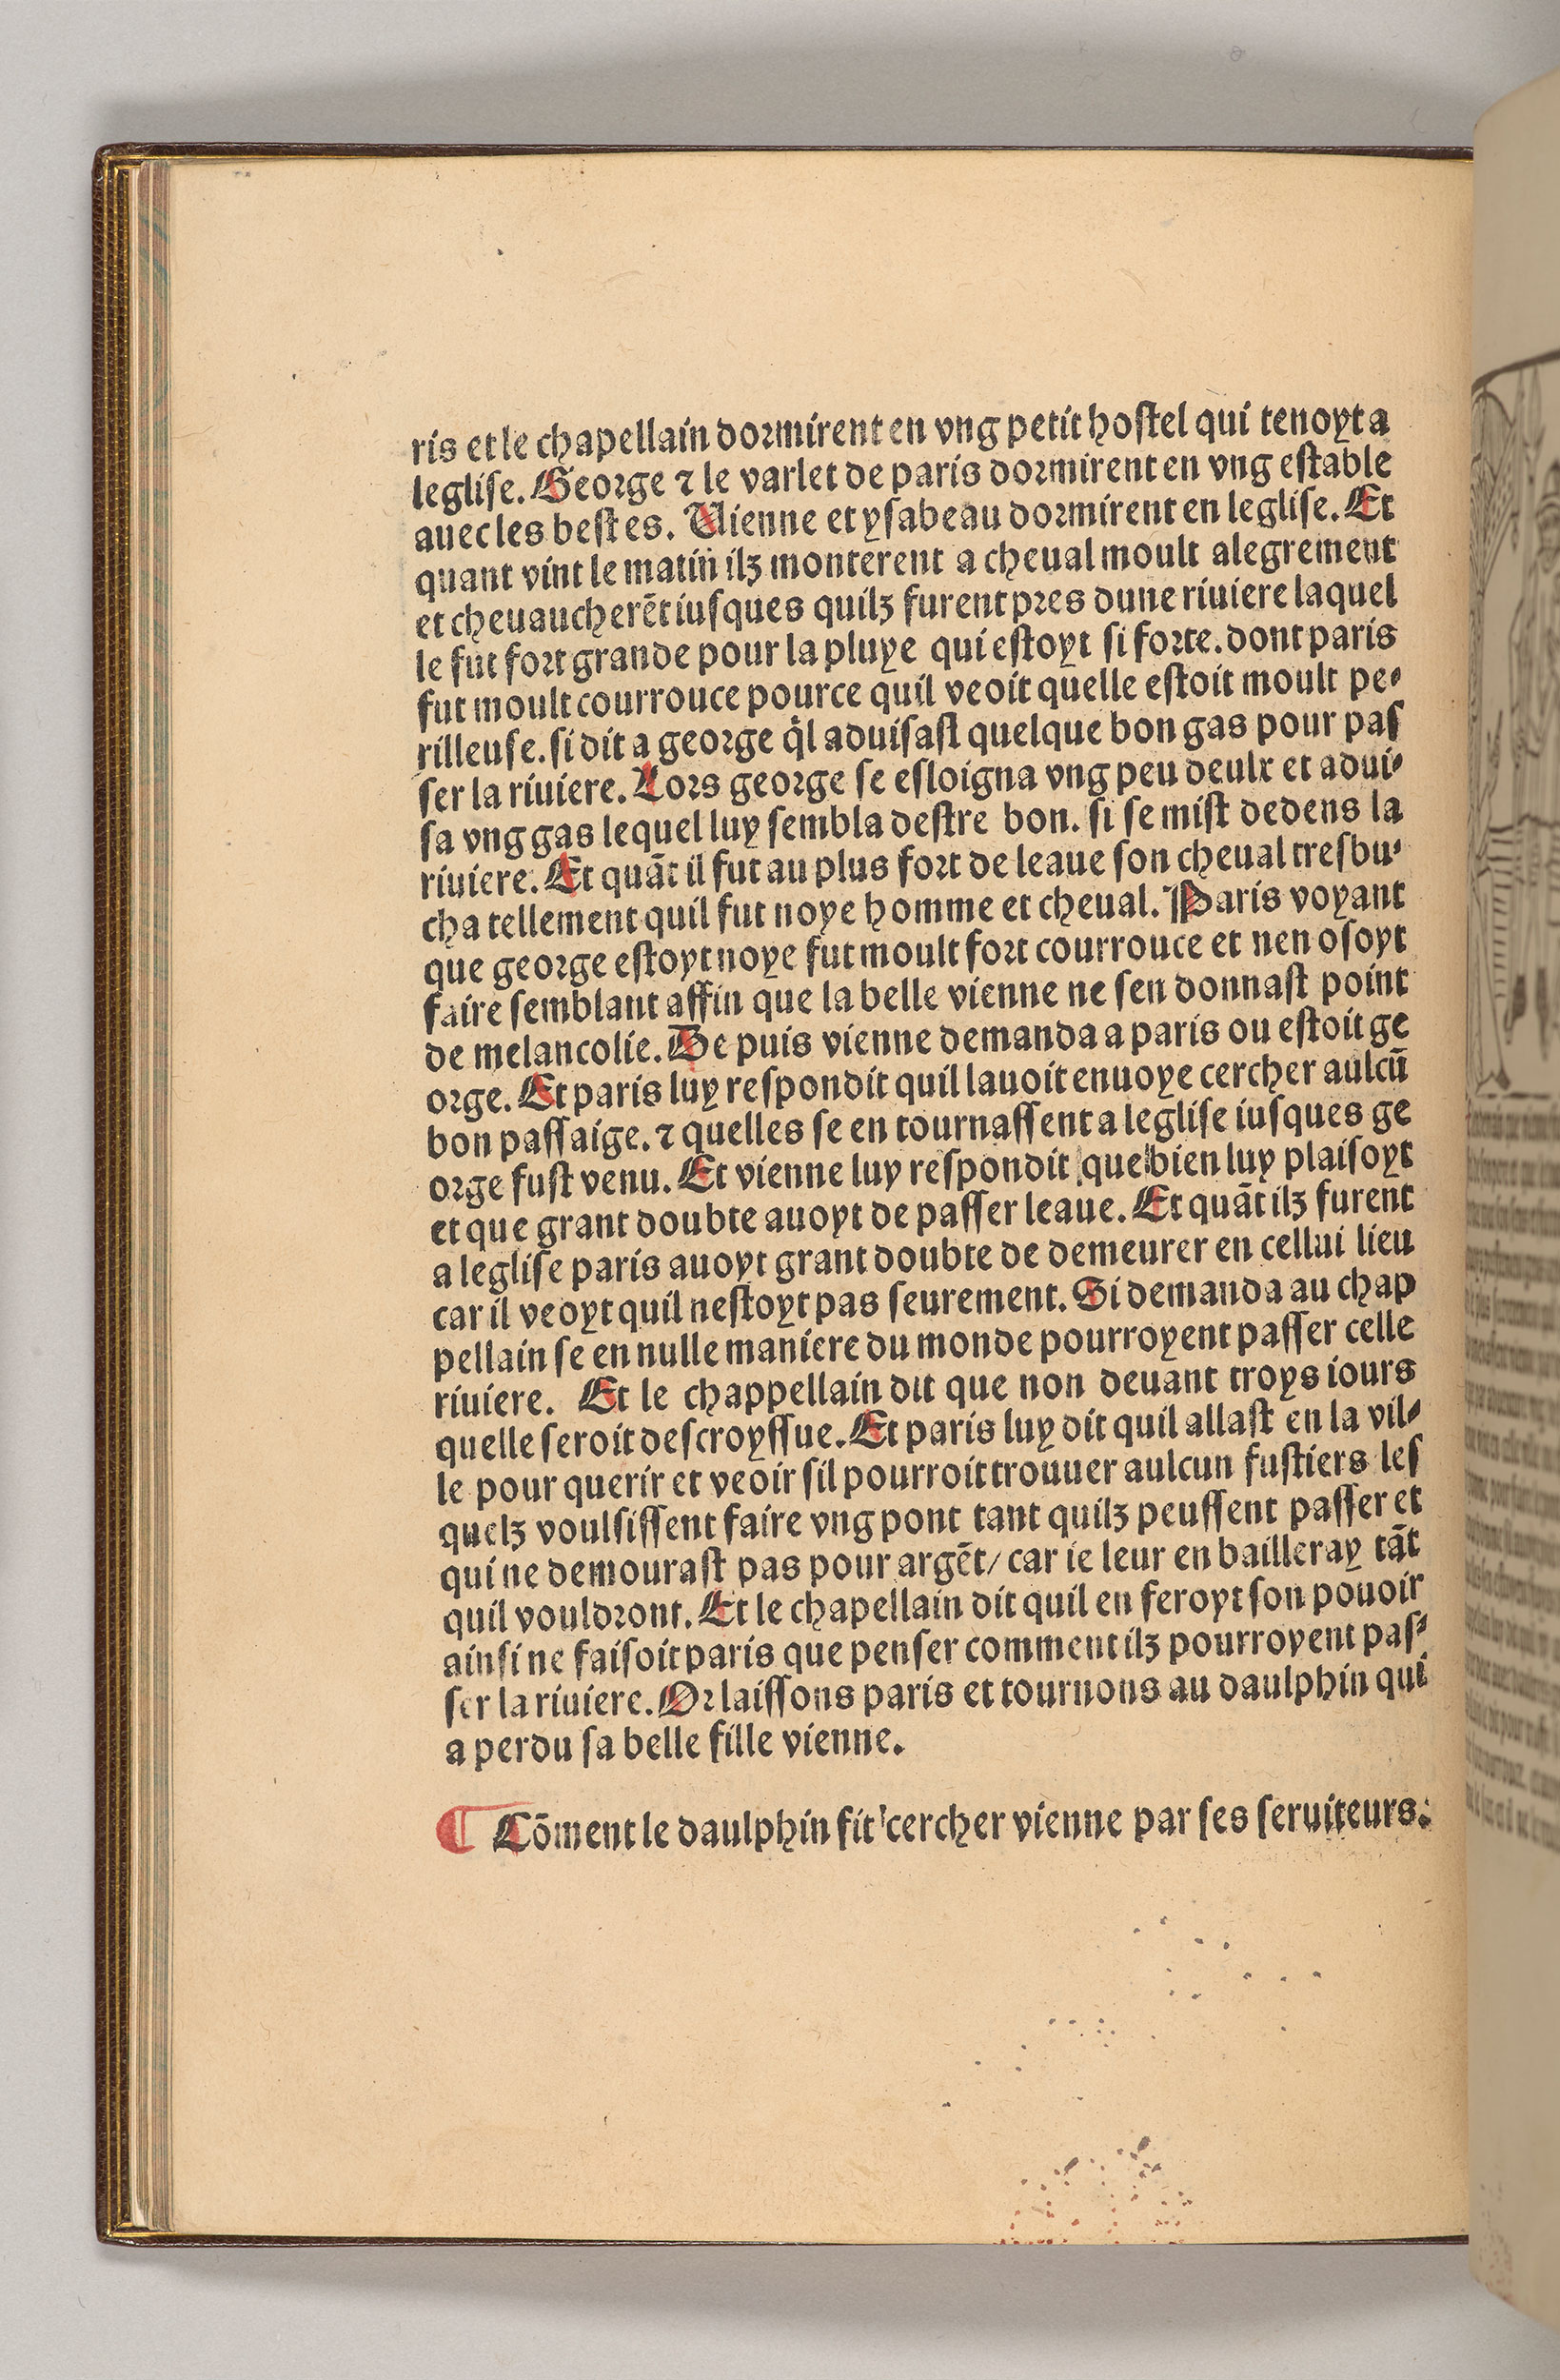 ris et le chapellain dormirent en vng petit hoſtel qui tenoyt a
legliſe. George ⁊ le varlet de paris dormirent en vng eſtable
auec les beſtes. Vienne et yſabeau dormirent en legliſe. Et
quant vint le matin ilz monterent a cheual moult alegrement
et cheuaucherēt iuſques quilz furent pres dune riuiere laquel
le fut fort grande pour la pluye qui eſtoyt ſi forte. dont paris
fut moult courrouce pource quil veoit quelle eſtoit moult pe⸗
rilleuſe. ſi dit a george q̇l aduiſaſt quelque bon gas pour paſ
ſer la riuiere. Lors george ſe eſloigna vng peu deulx et adui⸗
ſa vng gas lequel luy ſembla deſtre bon. ſi ſe miſt dedens la
riuiere. Et quāt il fut au plus fort de leaue ſon cheual treſbu⸗
cha tellement quil fut noye homme et cheual. Paris voyant
que george eſtoyt noye fut moult fort courrouce et nen oſoyt
faire ſemblant affin que la belle vienne ne ſen donnaſt point
de melancolie. De puis vienne demanda a paris ou eſtoit ge
orge. Et paris luy reſpondit quil lauoit enuoye cercher aulcū
bon paſſaige. ⁊ quelles ſe en tournaſſent a legliſe iuſques ge
orge fuſt venu. Et vienne luy reſpondit que bien luy plaiſoyt
et que grant doubte auoyt de paſſer leaue. Et quāt ilz furent
a legliſe paris auoyt grant doubte de demeurer en cellui lieu
car il veoyt quil neſtoyt pas ſeurement. Si demanda au chap
pellain ſe en nulle maniere du monde pourroyent paſſer celle
riuiere. Et le chappellain dit que non deuant troys iours
quelle ſeroit deſcroyſſue. Et paris luy dit quil allaſt en la vil⸗
le pour querir et veoir ſil pourroit trouuer aulcun fuſtiers leſ
quelz voulſiſſent faire vng pont tant quilz peuſſent paſſer et
qui ne demouraſt pas pour argēt/ car ie leur en bailleray tāt
quil vouldront. Et le chapellain dit quil en feroyt ſon pouoir
ainſi ne faiſoit paris que penſer comment ilz pourroyent paſ⸗
ſer la riuiere. Or laiſſons paris et tournons au daulphin qui
a perdu ſa belle fille vienne.
¶ Cōment le daulphin fit cercher vienne par ſes ſeruiteurs.